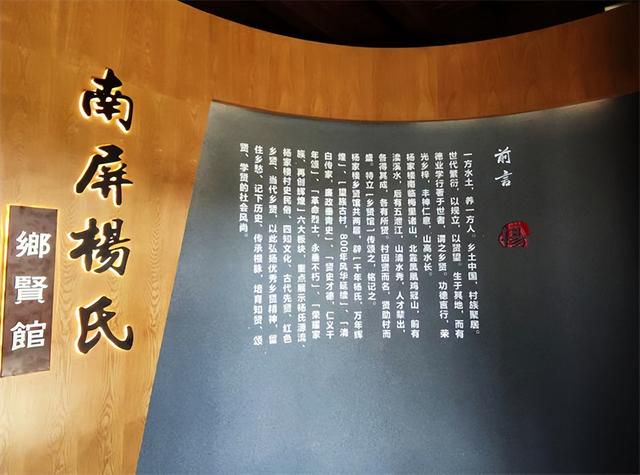 前言
一方水土，养一方人。乡土中国，村族聚居。
世代繁衍，以规立，以贤望。生于其地，而有
德业学行著于世者，谓之乡贤。功德言行，荣
光乡梓，丰神仁意，山高水长。
杨家楼南临梅里诸山，北靠凤凰鸡冠山，前有
渎溪水，后有五泄江，山清水秀，人才辈出，
各得其成，各有所贤。村因贤而名，贤助村而
盛，特立一乡贤馆一传颂之，铭记之。
杨家楼乡贤馆共两层，辟「一千年杨氏，万年辉
煌」、「一望族古村，800年风华延续」、「清
白传家，廉政垂青史」、「贤史才德，仁义千
年颂」、「革命烈士，永垂不朽」、「荣耀家
族，再创辉煌」六大板块，重点展示杨氏源流、
杨家楼村史民俗、四知文化、古代先贤、红色
乡贤、当代乡贤，以此弘扬优秀乡贤精神，留
住乡愁、记下历史、传承根脉，培育知贤、颂
贤、学贤的社会风尚。
南屏楊氏
鄉賢館